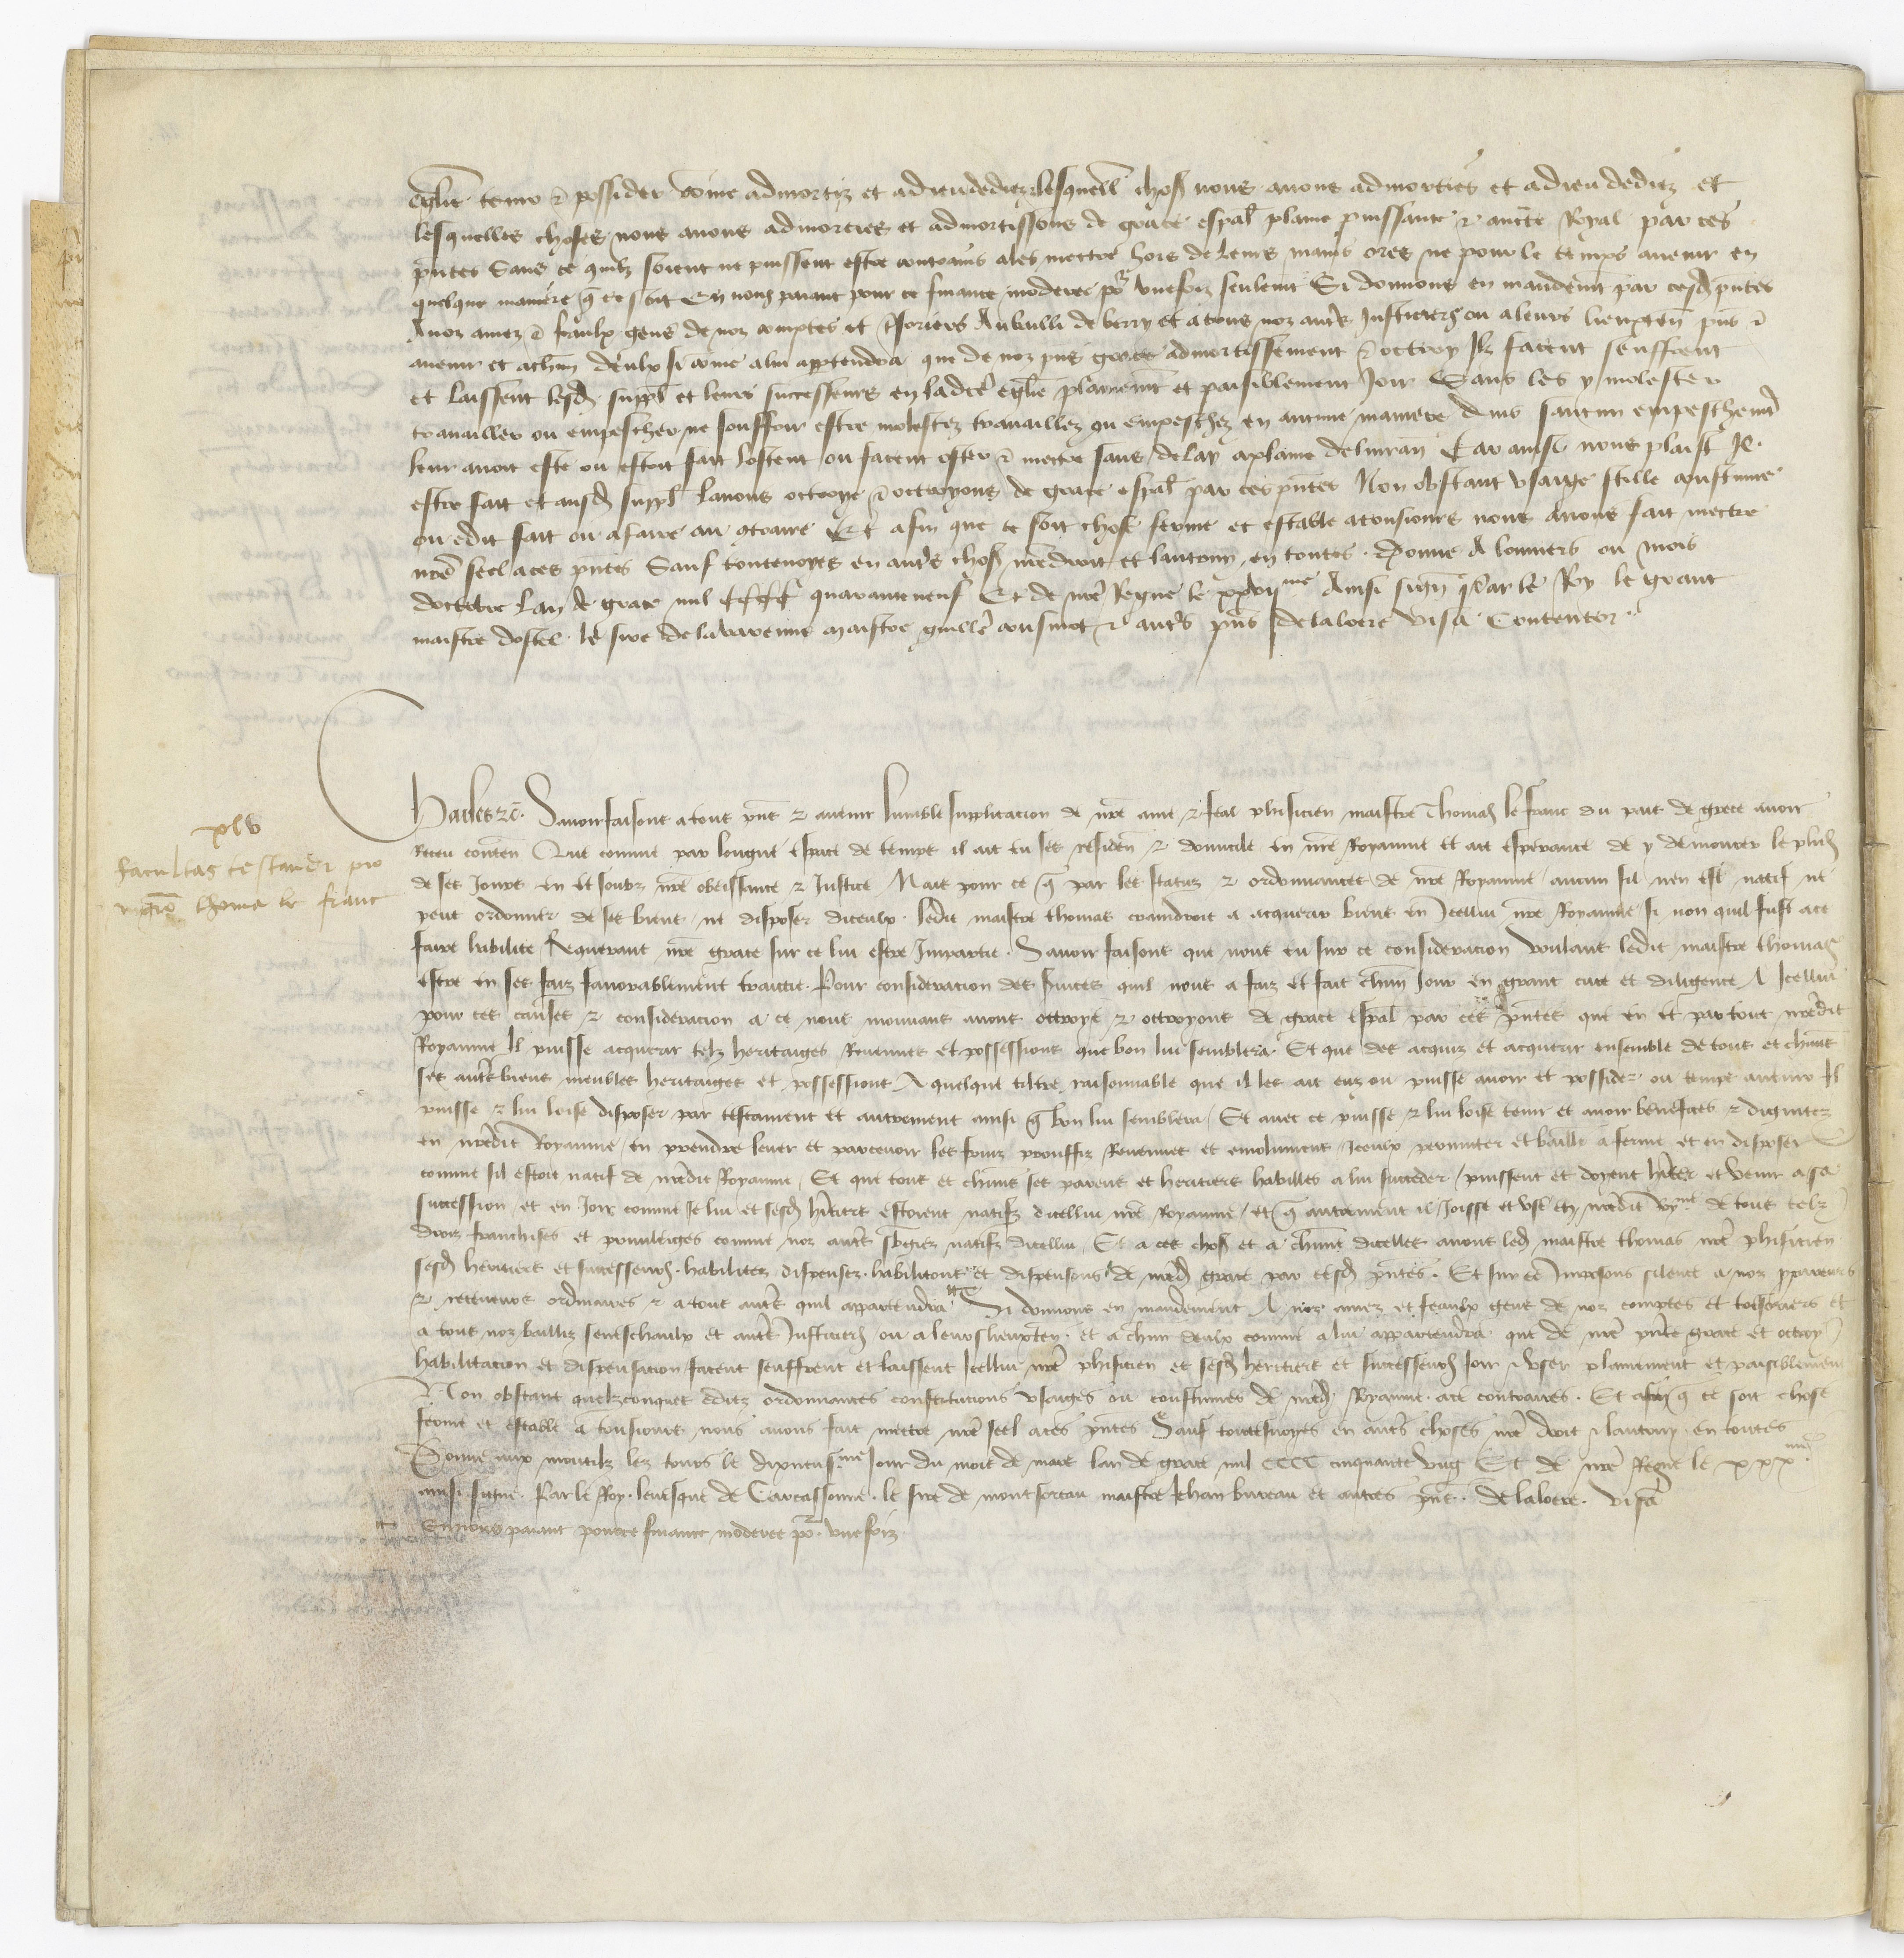 eglise tenir et possider co͞me admortiz et a dieu dediez lesquell' chos' nous avons admorties et a dieu dediez et
lesquelles choses nous avons admorties et admortissons de grace esp͞al plaine puissance et auct͞e Royal par ces
p͞ntes Sans ce quilz soient ne puissent estre contrains a les mectre hors de leurs mains ores ne pour le temps avenir en
quelque maniere q͞ ce soit En nous paiant pour ce finance moderee po͞r une foiz seulem͞t Si donnons en mandem͞t par cesd' p͞ntes
A noz amez et feaulx gens de noz comptes et t͞soriers Au bailli de berry et a tous noz aut͞s Justiciers ou a leurs lieuxten͞ p͞ns et
avenir et a ch͞un deulx si co͞me a lui app͞tendra que de noz p͞ns grace admortissement et octroy Ilz facent seuffrent
et laissent lesd' suppl' et leurs successeurs en ladicte eglise plainem͞t et paisiblement Joir Sans les y molester
travailler ou empescher ne souffrir estre molestez travaillez ou empeschez en aucune maniere Ains saucun empeschem͞t
leur avoit este ou estoit fait lostent ou facent oster et mectre sans delay a plaine delivran͞ Car ainsi nous plaist Il
estre fait et ausd' suppl' lavons octroye et octroyons de grace esp͞al par ces p͞ntes Non obstant usaige stille coustume
ou edit fait ou a faire au 9traire Et afin que ce soit chose ferme et estable a tousiours nous avons fait mectre
n͞re seel a ces p͞ntes Sauf toutevoyes en aut͞s chos' n͞re droit et lautruy en toutes Donne A lomiers ou mois
doctobre Lan de grace mil CCCC quarante neuf Et de n͞re Regne le xxvij me Ainsi sign͞ Par le Roy le grant
maistre dostel le sire de la varenne maistre guill'e cousinot et aut͞s p͞ns Delaloere Visa Contentor
Charles &c. Savoir faisons a tous p͞ns et avenir lumble supplicacion de n͞re ame et feal phisicien maistre Thomas le franc du pais de grece avoir
receu conten͞ Que comme par longue espace de temps il ait eu ses residen͞ et domicile en n͞re Royaume et ait esperance de y demourer le plus
de ses Jours en et soubz n͞re obeissance et Justice Mais pour ce q͞ par les status et ordonnances de n͞re Royaume aucun sil nen est natif ne
peut ordonner de ses biens ne disposer diceulx ledit maistre thomas craindroit a acquerir biens en Icellui n͞re Royaume si non quil fust a ce
faire habilite Requerant n͞re grace sur ce lui estre Impartie Savoir faisons que nous eu sur ce consideracion voulans ledit maistre thomas
estre en ses faiz favorablement traictie Pour consideracion des s͞vices quil nous a faiz et fait ch͞un Jour en grant cure et diligence A Icellui
pour ces causes et consideracion a ce nous mouvans avons octroye et octroyons de grace esp͞al par ces p͞ntes que en et par tout n͞redit
Royaume Il puisse acquerir telz heritaiges Revenues et possessions que bon lui semblera Et que des acquiz et acquerir ensemble de tous et ch͞uns
ses aut͞s biens meubles heritaiges et possessions A quelque tiltre raisonnable que il les ait euz ou puisse avoir et possider ou temps avenir Il
puisse et lui loise disposer par testament et autrement ainsi q͞ bon lui semblera Et avec ce puisse et lui loise tenir et avoir benefices et dignitez
en n͞redit Royaume en prendre lever et parcevoir les fruiz prouffiz Revenues et emolumens Iceulx permuter et bailler a ferme et en disposer
comme sil estoit natif de n͞redit Royaume Et que tous et ch͞uns ses parens et heritiers habilles a lui succeder puissent et doyent h͞iter et venir a sa
succession et en Joir comme se lui et sesd' h͞itiers estoient natifz dicellui n͞re Royaume et q͞ autrement il Joisse et use en n͞redit Ro͞yme de tous telz
droiz franchises et privileiges comme noz aut͞s s͞bgiez natifz dicellui Et a ces chos' et a ch͞une dicelles avons led' maistre thomas n͞re phisicien
sesd' heritiers et successeurs habilitez dispensez habilitons et dispensons de n͞red' grace par cesd' p͞ntes Et sur ce Imposons silence a noz p͞cureurs
et receveurs ordinaires et a tous aut͞s quil appartendra Si donnons en mandement A noz amez et feaulx gens de noz comptes et tresoriers et
a tous noz bailliz seneschaulx et aut͞s Justiciers ou a leurs lieuxten͞ et a ch͞un deulx comme a lui appartendra que de n͞re p͞nte grace et octroy
habilitacion et dispensacion facent seuffrent et laissent Icellui n͞re phisicien et sesd' heritiers et successeurs Joir et user plainement et paisiblement
Non obstant quelzconques ediz ordonnances constitucions usaiges ou coustumes de n͞red' Royaume a ce contraires Et afin q͞ ce soit chose
ferme et estable a tousiours nous avons fait mectre n͞re seel a ces p͞ntes Sauf toutesvoyes en aut͞s choses n͞re droit et lautruy en toutes
Donne aux montilz lez tours le dixneuf me Jour du mois de mars lan de grace mil CCCC cinquante ung Et de n͞re Regne le xxx me
ainsi signe Par le Roy levesque de Carcassonne le sire de montsoreau maistre Jehan bureau et autres p͞ns Delaloere Visa
En nous paiant pour ce finance moderee po͞r une foiz
xlv
Facultas testandi pro
mag͞ro thoma le franc